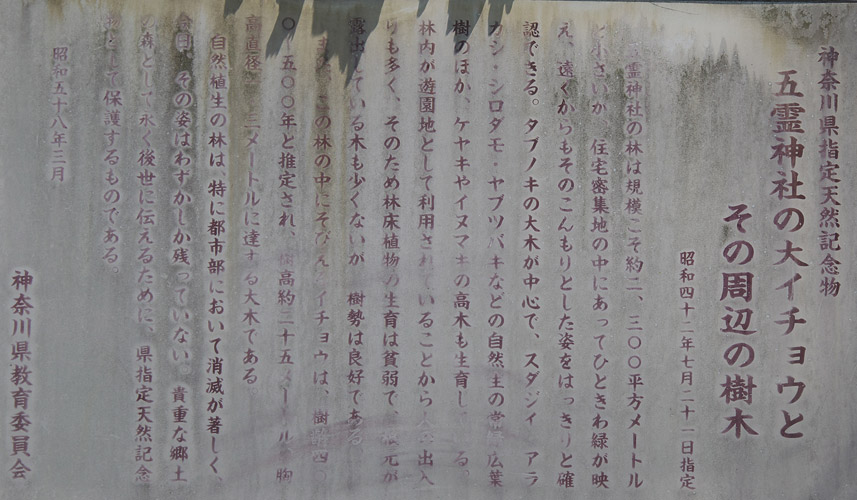 神奈川県指定天然記念物
五霊神社の大イチョウと
その周辺の樹木
昭和四十二年七月二十一日指定
霊神社の林は規模こそ約二、三〇〇平方メートル
小さいが、住宅密集地の中にあってひときわ緑が映
え、遠くからもそのこんもりとした姿をはっきりと確
認できる。タブノキの大木が中心で、スダジイ アラ
カシ・シロダモ・ヤブツバキなどの自然生の常緑広葉
樹のほか、ケヤキやイヌマキの高木も生育し る。
林内が遊園地として利用されていることから 出入
りも多く、そのため林床植物の生育は貧弱で、 元が
露出している木も少くないが 樹勢は良好である
この林の中にそびえ イチョウは、樹 四
〇〜五〇〇年と推定され、樹高約二十五メートル 胸
高直径 三メートルに達する大木である
自然植生の林は、特に都市部において消滅が著しく、
その姿はわずかしか残っていない。貴重な郷土
の森として永く後世に伝えるために、県指定天然記念
物として保護するものである。
昭和五十八年三月
神奈川県教育委員会